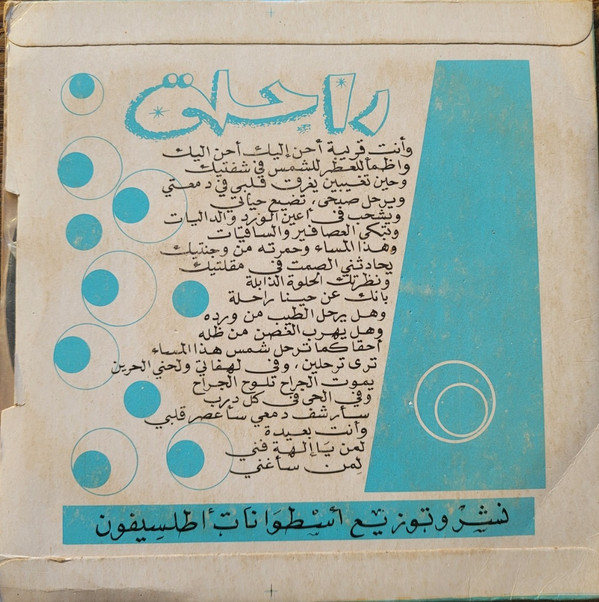 راحلة
وأنت قريبة أحن إليك أحن اليك
واظمأ للعطر للشمس في شفتيك
وحين تغيبين يغرق قلبي في دمعتي
ويرحل صبحي، تضيع حياتي
ويشحب في أعين الورد والداليات
وتبكي العصافير والساقيات
وهذا المساء وحمرته من وجنتيك
يحادثني الصمت في مقلتيك
ونظرتك الحلوة الذابلة
بانك عن حينا راحلة
وهل يرحل الطيب من ورده
وهل يهرب الغصن من ظله
أحقا كما ترحل شمس هذا المساء
ترى ترحلين، وفي لهفاتي ولحني الحزين
يموت الجراح تلوح الجراح
وفي الحي في كل درب
سأرشف دمعي سأعصر قلبي
وأنت بعيدة
لمن يا إلهة فني
لمن سأغني
نشر وتوزيع أسطوانات أطلسيفون